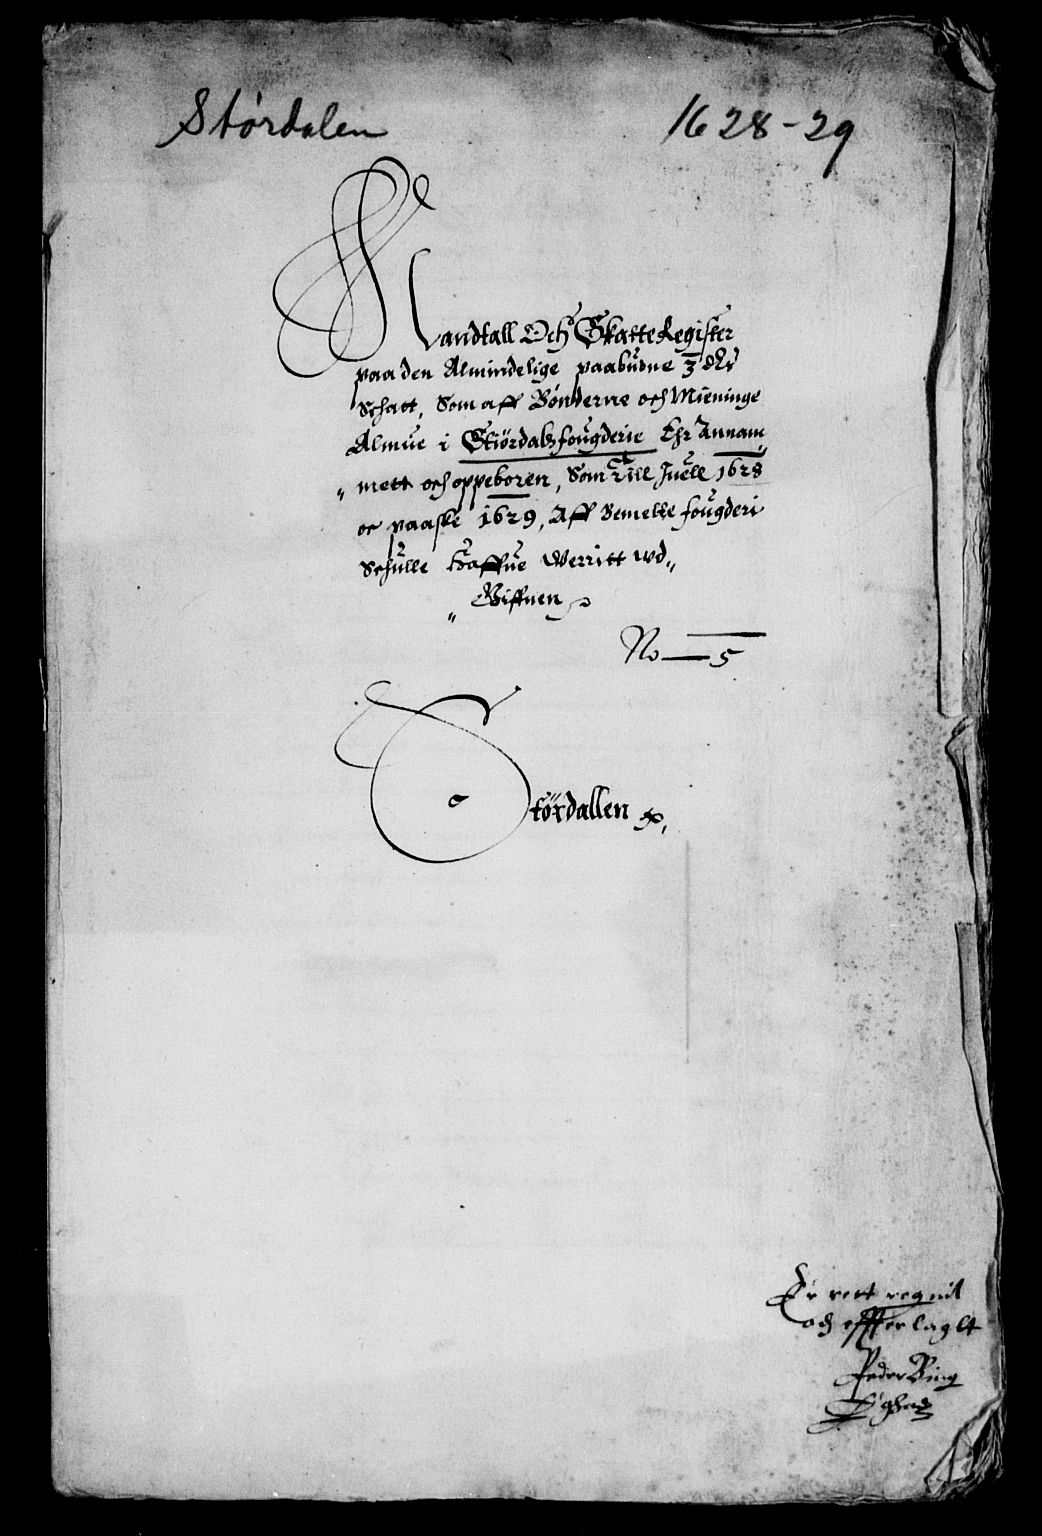 Stördalen 1628-29
Mandtall Och Skatte Register
paa den Almindelige paabudne 3 dlr
Schatt, Som aff Bønderne och Mieninge
Almue i Stiørdalsfougderie Ehr Annam
mett och oppeboren, Som till Juell 1628
oc paaske 1629, Aff Bemelte fougderi
Schulle haffue Werritt wd„
„ Giffuen
No 5
Stördallen
Er rett regnit
och effterlaglt
Peder Bing